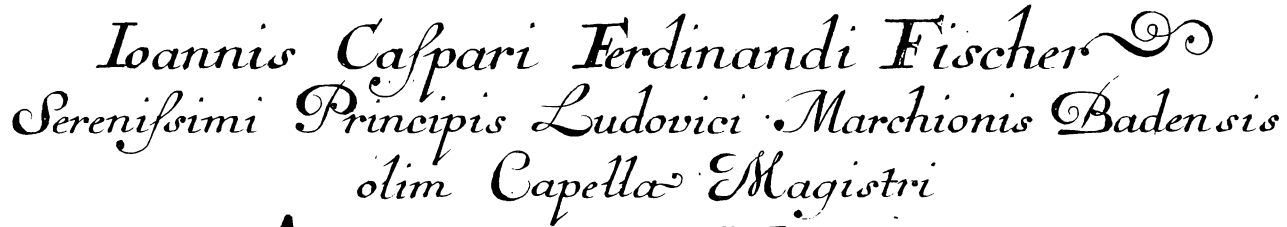 Ioannis Caſpari Ferdinandi Fischer
Sereniſsimi Principis Ludovici Marchionis Badensis
olim Capellæ Magistri